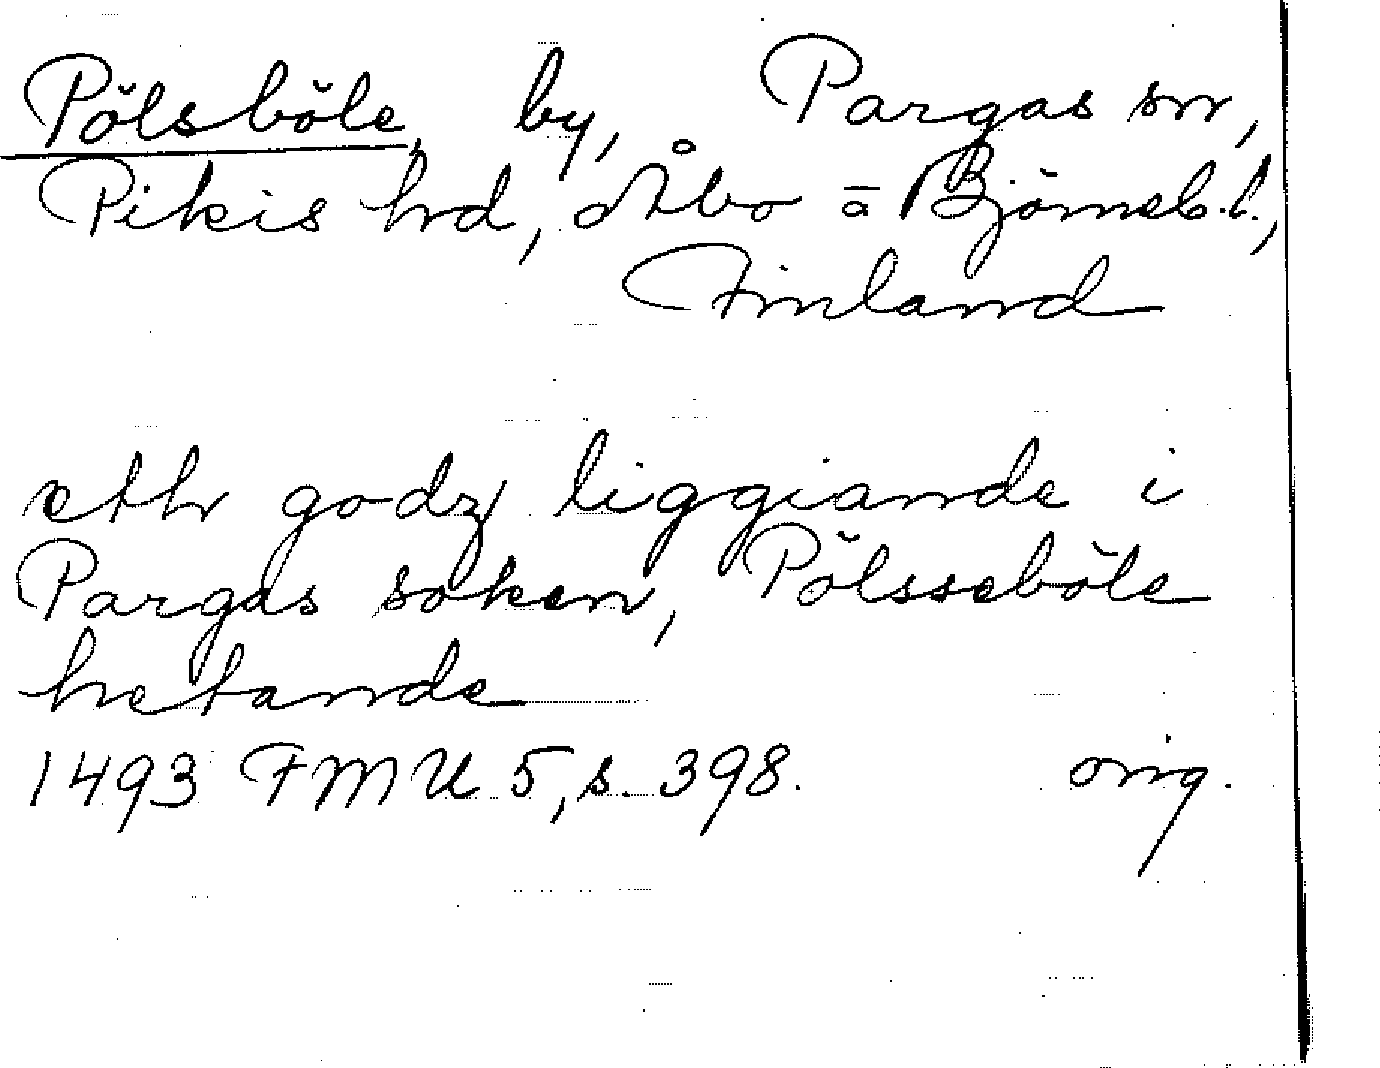 Pölsböle, by, Pargas sn,
Pikis hd, Åbo o Björneb. l.,
Finland
ett godz liggiande i
Pargas soken, Pölsseböle
hetande
1493 FMU 5, s. 398. orig.